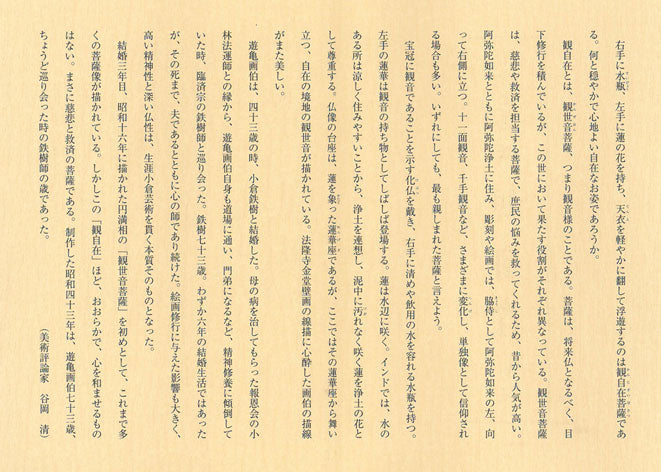 右手に水瓶、左手に蓮の花を持ち、天衣を軽やかに翻して浮遊するのは観自在菩薩であ
る。何と穏やかで心地よい自在なお姿であろうか。
観自在とは、観世音菩薩、つまり観音様のことである。菩薩は、将来仏となるべく、目
下修行を積んでいるが、この世において果たす役割がそれぞれ異なっている。観世音菩薩
は、慈悲や救済を担当する菩薩で、庶民の悩みを救ってくれるため、昔から人気が高い。
阿弥陀如来とともに阿弥陀浄土に住み、彫刻や絵画では、脇侍として阿弥陀如来の左、向
って右側に立つ。十一面観音、千手観音など、さまざまに変化し、単独像として信仰され
る場合も多い。いずれにしても、最も親しまれた菩薩と言えよう。
宝冠に観音であることを示す化仏を戴き、右手に清めや飲用の水を容れる水瓶を持つ。
左手の蓮華は観音の持ち物としてしばしば登場する。蓮は水辺に咲く。インドでは、水の
ある所は涼しく住みやすいことから、浄土を連想し、泥中に汚れなく咲く蓮を浄土の花と
して尊重する。仏像の台座は、蓮を象った蓮華座であるが、ここではその蓮華座から舞い
立つ、自在の境地の観世音が描かれている。法隆寺金堂壁画の線描に心酔した画伯の描線
がまた美しい。
遊亀画伯は、四十三歳の時、小倉鉄樹と結婚した。母の病を治してもらった報恩会の小
林法運師との縁から、遊亀画伯自身も道場に通い、門弟になるなど、精神修養に傾倒して
いた時、臨済宗の鉄樹師と巡り会った。鉄樹七十三歳。わずか六年の結婚生活ではあった
が、その死まで、夫であるとともに心の師であり続けた。絵画修行に与えた影響も大きく、
高い精神性と深い仏性は、生涯小倉芸術を貫く本質そのものとなった。
結婚三年目、昭和十六年に描かれた円満相の「観世音菩薩」を初めとして、これまで多
くの菩薩像が描かれている。しかしこの「観自在」ほど、おおらかで、心を和ませるもの
はない。まさに慈悲と救済の菩薩である。制作した昭和四十三年は、遊亀画伯七十三歳、
ちょうど巡り会った時の鉄樹師の歳であった。
（美術評論家　谷岡　清）